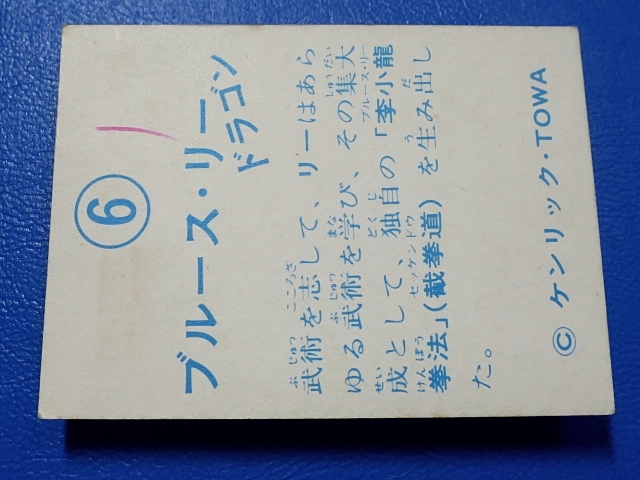 ⑥
ブルース・リー
ドラゴン
武術を志して、リーはあら
ゆる武術を学び、その集大
成として、独自の「李小龍
拳法」(截拳道)を生み出し
た。
©ケンリック・TOWA